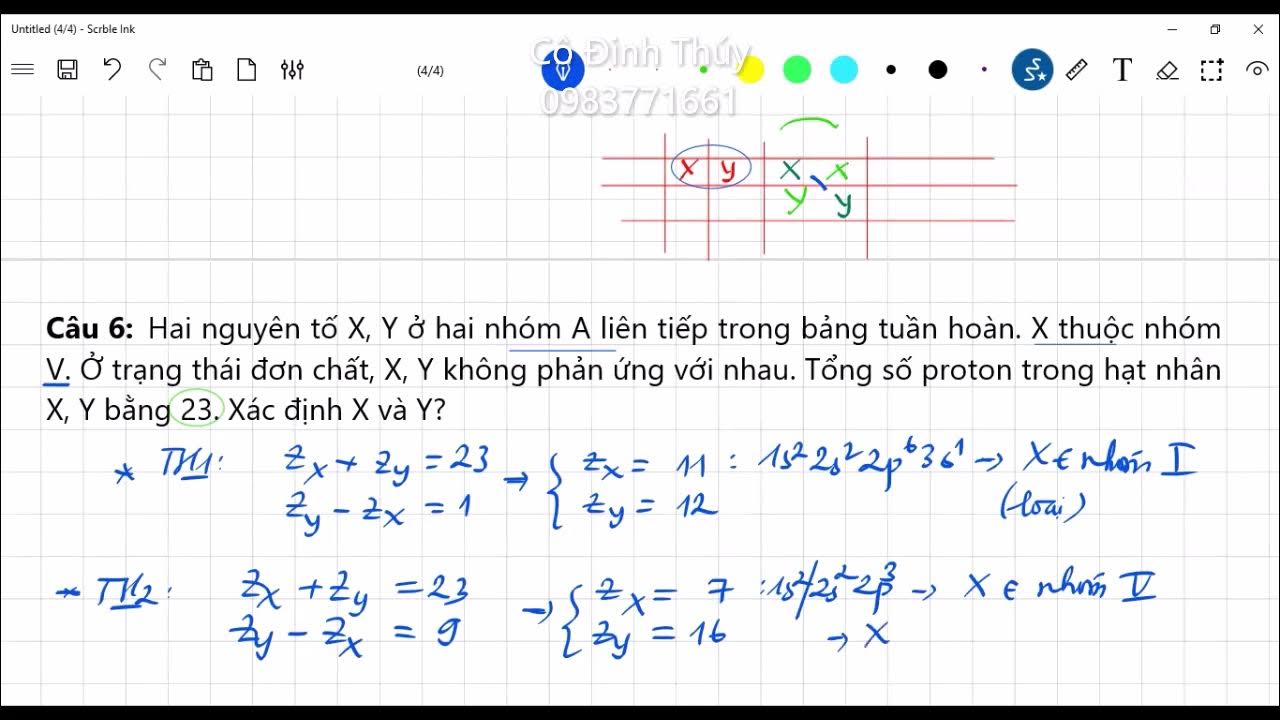 Untitled (4/4) - Scrble Ink
Cô Đinh Thúy
(4/4)
T
0983771661
X Y X X
Y Y
Câu 6: Hai nguyên tố X, Y ở hai nhóm A liên tiếp trong bảng tuần hoàn. X thuộc nhóm
V. Ở trạng thái đơn chất, X, Y không phản ứng với nhau. Tổng số proton trong hạt nhân
X, Y bằng 23. Xác định X và Y?
* TH1: Zx + Zy = 23 → { Zx = 11 : 1s² 2s² 2p⁶ 3s¹ → X ∈ nhóm I
Zy - Zx = 1 Zy = 12 (loại)
* TH2: Zx + Zy = 23 → { Zx = 7 : 1s²/2s² 2p³ → X ∈ nhóm V
Zy - Zx = 9 Zy = 16 → X